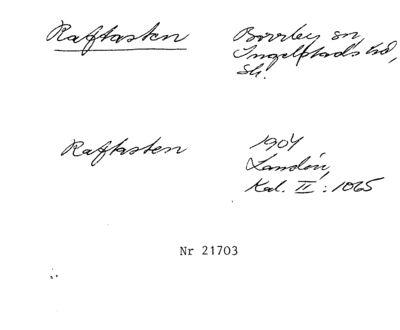 Raftasten
Borrby sn,
Ingelstads hd,
Sk.
Raftasten
1904
Landén,
Kal. II : 1065
Nr 21703